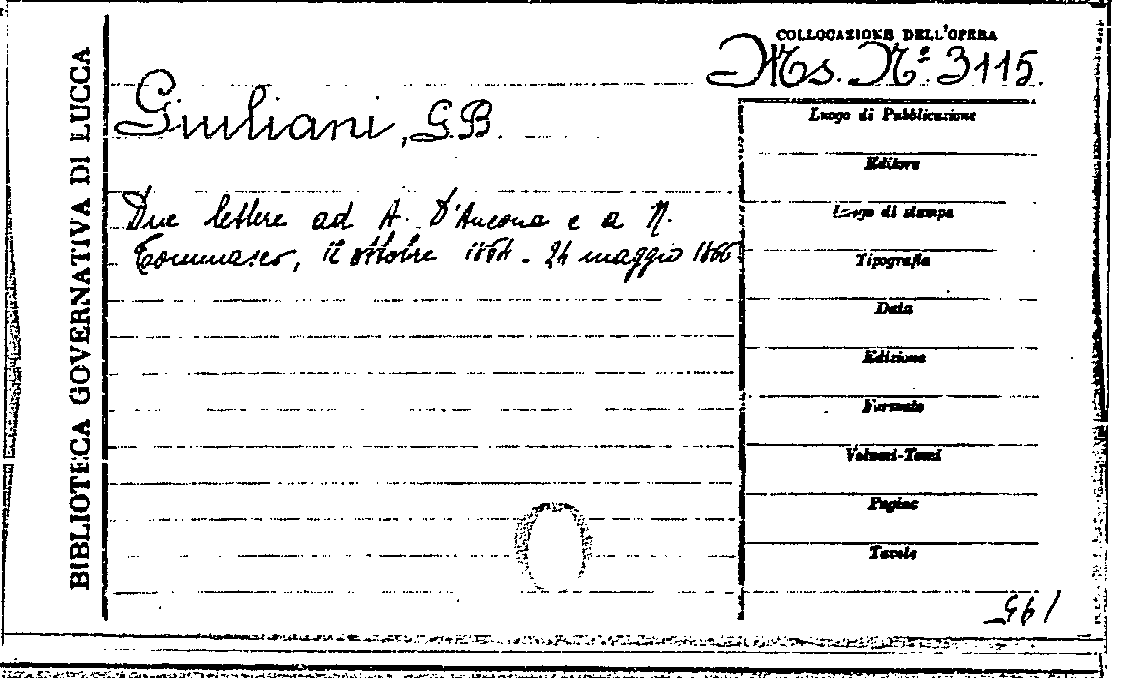 BIBLIOTECA GOVERNATIVA DI LUCCA
COLLOCAZIONE DELL'OPERA
Ms. Nº. 3115.
Giuliani, G.B.
Due lettere ad A. D'Ancona e a N.
Tommaseo, 12 ottobre 1864 - 24 maggio 1866
Luogo di Pubblicazione
Editore
Luogo di stampa
Tipografia
Data
Edizione
Formato
Volumi-Tomi
Pagine
Tavole